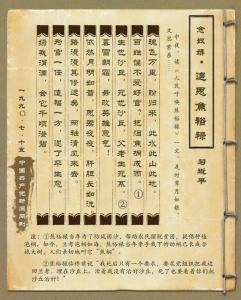 念奴娇·追思焦裕禄
习近平
中夜，读《人民呼唤焦裕禄》一文，是时霁月如银，
文思萦系……
魂飞万里，盼归来，此水此山此地。
百姓谁不爱好官？把泪焦桐成雨。①
生也沙丘，死也沙丘，父老生死系。②
暮雪朝霜，毋改英雄意气！
依然月明如昔，思君夜夜，肝胆长如洗。
路漫漫其修远矣，两袖清风来去。
为官一任，造福一方，遂了平生意。
绿我涓滴，会它千顷澄碧。
一九九〇·七·十五
注：①焦裕禄当年为了防风固沙，帮助农民摆脱贫困，提倡种植
泡桐。如今，兰考泡桐如海，焦裕禄当年亲手栽下的幼桐已长成合
抱大树，人们亲切地叫它“焦桐”。
②焦裕禄临终前说“我死后只有一个要求，要求党组织把我运
回兰考，埋在沙丘上，活着我没有治好沙丘，死了也要看着你们把
沙丘治好！”